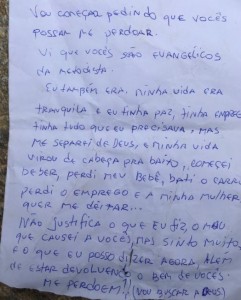 VOU COMEÇAR PEDINDO QUE VOCÊS
POSSAM ME PERDOAR.
VI QUE VOCÊS SÃO EVANGÉLICOS
DA METODISTA.
EU TAMBÉM ERA, MINHA VIDA ERA
TRANQUILA E EU TINHA PAZ, TINHA EMPREGO
TINHA TUDO QUE EU PRECISAVA, MAS
ME SEPAREI DE DEUS, E MINHA VIDA
VIROU DE CABEÇA PRA BAIXO, COMECEI
BEBER, PERDI MEU BEBÊ, BATI O CARRO
PERDI O EMPREGO E A MINHA MULHER
QUER ME DEIXAR...
NÃO JUSTIFICA O QUE EU FIZ, O MAU
QUE CAUSEI A VOCÊS, MAS SINTO MUITO,
É O QUE EU POSSO DIZER AGORA ALÉM
DE ESTAR DEVOLVENDO O BEM DE VOCÊS.
ME PERDOEM! (VOU BUSCAR A DEUS)